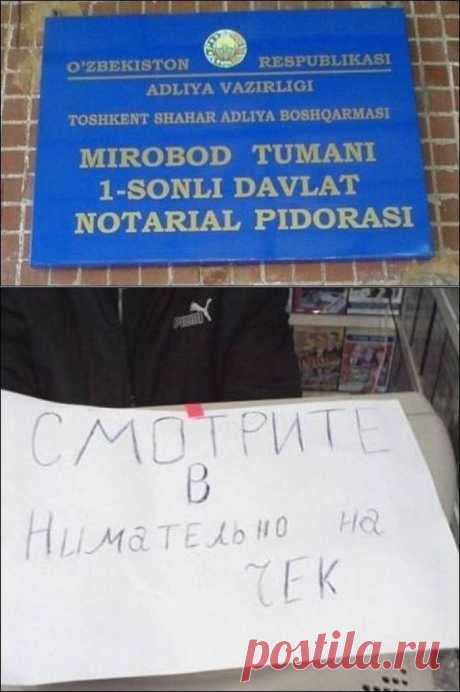 O'ZBEKISTON RESPUBLIKASI
ADLIYA VAZIRLIGI
TOSHKENT SHAHAR ADLIYA BOSHQARMASI
MIROBOD TUMANI
1-SONLI DAVLAT
NOTARIAL PIDORASI
PUMA
СМОТРИТЕ
В
НИМАТЕЛЬНО НА
ЧЕК
postila.ru